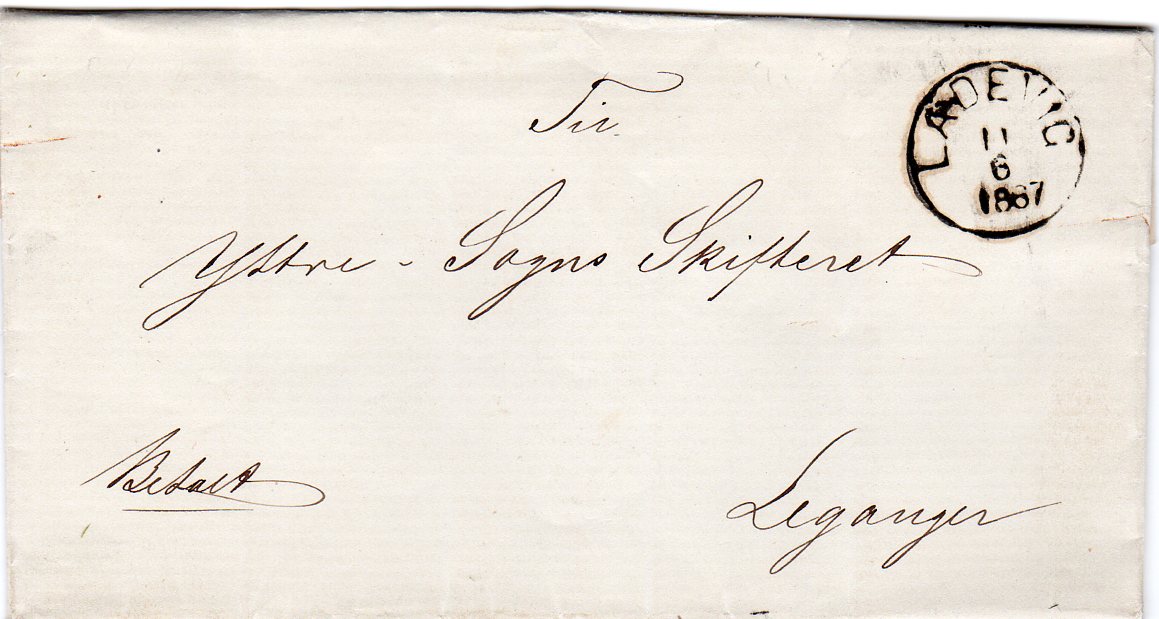 Til
LADEVIG
11
6
1867
Yttre - Sogns Skifteret
Betalt
Leganger